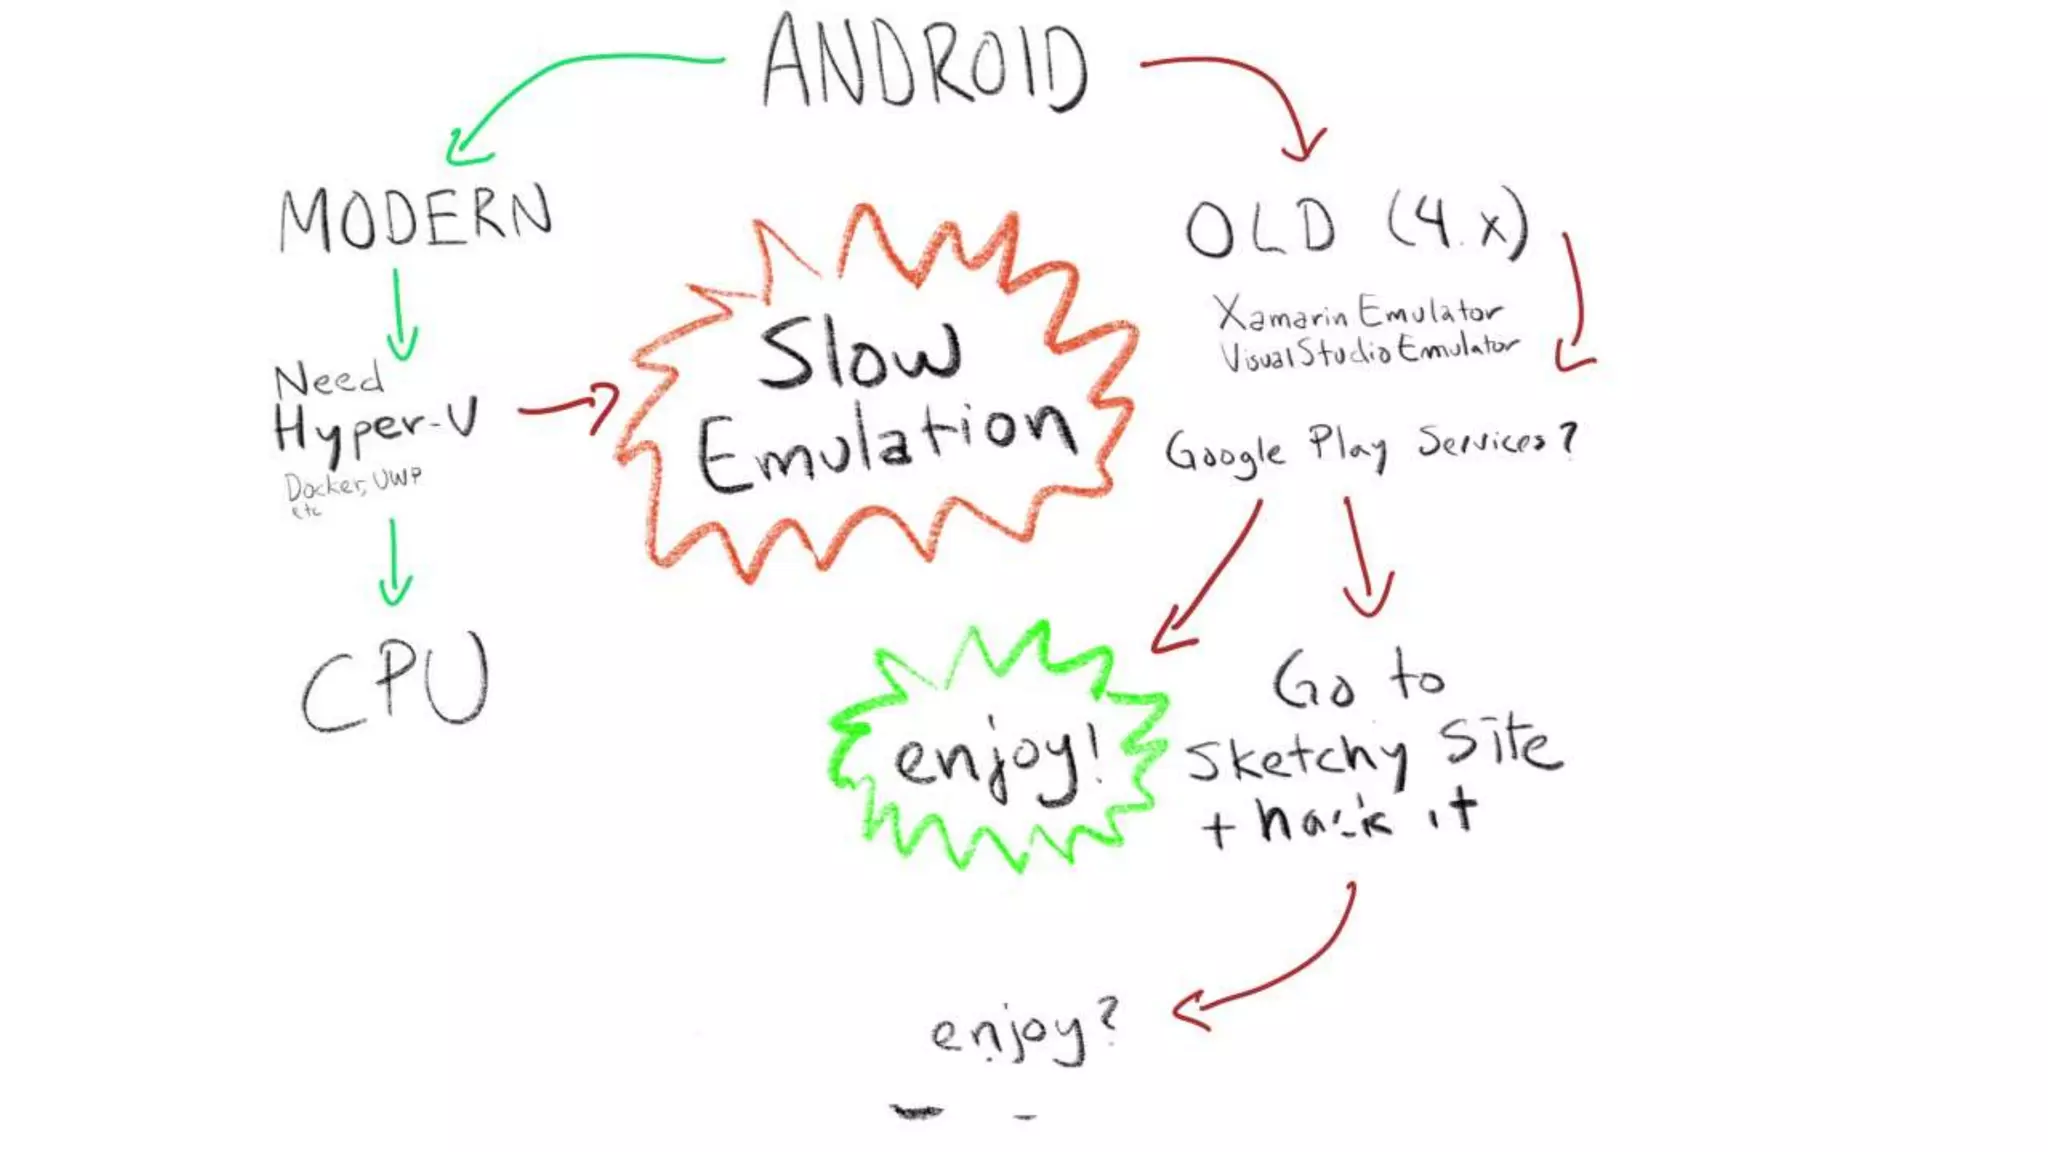 ANDROID
MODERN
OLD (4.x)
Xamarin Emulator
Visual Studio Emulator
Slow
Emulation
Need
Hyper-V
Docker, UWP
etc
Google Play Services?
CPU
enjoy!
Go to
Sketchy Site
+ hack it
enjoy?